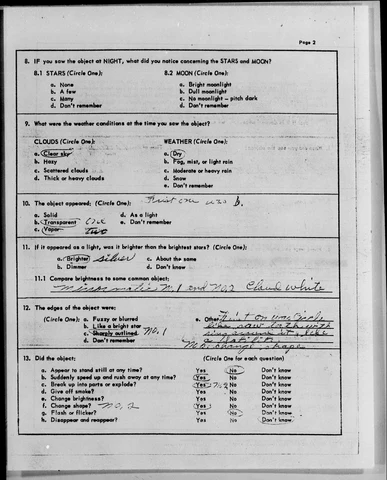 Page 2
8. IF you saw the object at NIGHT, what did you notice concerning the STARS and MOON?
8.1 STARS (Circle One): 8.2 MOON (Circle One):
a. None a. Bright moonlight
b. A few b. Dull moonlight
c. Many c. No moonlight – pitch dark
d. Don't remember d. Don't remember
9. What were the weather conditions at the time you saw the object?
CLOUDS (Circle One): WEATHER (Circle One):
a. Clear sky a. Dry
b. Hazy b. Fog, mist, or light rain
c. Scattered clouds c. Moderate or heavy rain
d. Thick or heavy clouds d. Snow
e. Don't remember
10. The object appeared: (Circle One): First one was b.
a. Solid d. As a light
b. Transparent e. Don't remember
c. Vapor two
11. If it appeared as a light, was it brighter than the brightest stars? (Circle One):
a. Brighter silver c. About the same
b. Dimmer d. Don't know
11.1 Compare brightness to some common object:
No. 1 and No 2 Cloud white
12. The edges of the object were:
(Circle One): a. Fuzzy or blurred e. Other First on was
b. Like a bright star like saw with
c. Sharply outlined No. 1 ring around it, like
d. Don't remember a
No. change shape
13. Did the object: (Circle One for each question)
a. Appear to stand still at any time? Yes No Don't know
b. Suddenly speed up and rush away at any time? Yes No Don't know
c. Break up into parts or explode? Yes No 2 No Don't know
d. Give off smoke? Yes No Don't know
e. Change brightness? Yes No Don't know
f. Change shape? No. 2 Yes No Don't know
g. Flash or flicker? Yes No Don't know
h. Disappear and reappear? Yes No Don't know